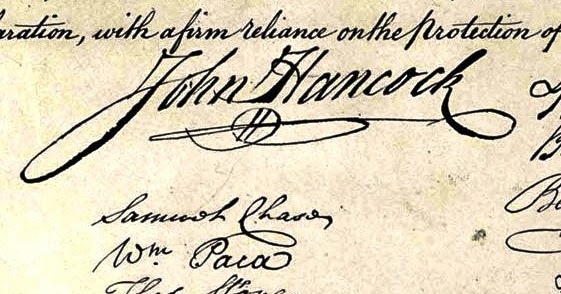 aration, with a firm reliance on the protection of
John Hancock
Samuel Chase
Wm Paca
Thos Stone